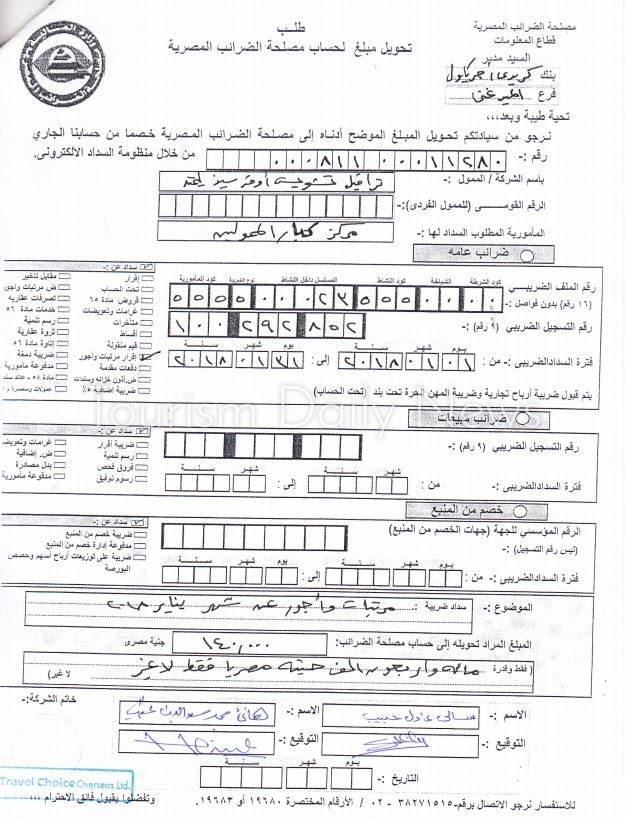 مصلحة الضرائب المصرية
قطاع المعلومات
طلب
تحويل مبلغ لحساب مصلحة الضرائب المصرية
السيد مدير
بنك كريدي اجريكول
فرع الميرغني
تحية طيبة وبعد،،،
نرجو من سيادتكم تحويل المبلغ الموضح أدناه إلى مصلحة الضرائب المصرية خصما من حسابنا الجاري
رقم :- ٠٠٠٨١١٠٠٠١١٢٨٠ من خلال منظومة السداد الالكترونى.
باسم الشركة / الممول :- ترافيل تشويس أوفر سيز ليمتد
الرقم القومى (للممول الفردى):-
المأمورية المطلوب السداد لها :- مركز كبار الممولين
ضرائب عامه
سداد عن :-
كود الشرطة الشياخة كود النشاط المسلسل داخل النشاط نوع الضريبة كود المأمورية
رقم الملف الضريبي
(١٦ رقم) بدون فواصل :-
رقم التسجيل الضريبي (٩ رقم) :- ١٠٠ ٢٩٢ ٨٥٢
يوم شهر سنة يوم شهر سنة
فترة السداد الضريبى :- من : ٢٠١٨٠١٠١ إلى : ٢٠١٨٠١٣١
إقرار
تحت الحساب
فروض مادة ٦٥
غرامات وتعويضات
متأخرات
أقساط
قيم منقولة
إقرار مرتبات وأجور
دفعات مقدمة
ض.أذون خزانه وسندات
ضريبة اضافية ٥٪
مقابل تأخير
ض مرتبات وأجور
تصرفات عقاريه
خدمات مادة ٥٦
رسم تنمية
ثروة عقارية
إتاوة مادة ٥٦
ضريبة دمغة
مدفوعة مأمورية
مادة ٥٨ - عائد سند
عمولات وسمسرة م
يتم قبول ضريبة أرباح تجارية وضريبة المهن الحرة تحت بند (تحت الحساب)
Tourism Daily News
ضرائب مبيعات
سداد عن :-
رقم التسجيل الضريبي (٩ رقم) :-
شهر سنة شهر سنة
فترة السداد الضريبى :- من : إلى :
ضريبة أقرار
رسم تنمية
فروق فحص
رسوم توفيق
غرامات وتعويض
ض. إضافية
بدل مصادرة
مدفوعة مأمورية
خصم من المنبع
سداد عن :-
الرقم المؤسسي للجهة (جهات الخصم من المنبع)
(ليس رقم التسجيل) :-
يوم شهر سنة يوم شهر سنة
فترة السداد الضريبى :- من : إلى :
ضريبة خصم من المنبع
مدفوعة إدارة خصم من المنبع
ضريبة على توزيعات أرباح أسهم وحصص
البورصة
الموضوع :- سداد ضريبة : مرتبات وأجور عن شهر يناير ٢٠١٨
المبلغ المراد تحويله إلى حساب مصلحة الضرائب: ١٤٠,٠٠٠ جنية مصرى
( فقط وقدرة مائه واربعون الف جنيه مصريا فقط لا غير لا غير)
خاتم الشركة:-
الاسم :- سالى عادل حبيب الاسم :-
التوقيع :- التوقيع :-
يوم شهر سنة
التاريخ :-
Travel Choice Overseas Ltd.
للاستفسار نرجو الاتصال برقم- ٣٨٢٧١٥١٥ - ٠٢ / الأرقام المختصرة ١٩٦٨٠ أو ١٩٦٨٣. وتفضلوا بقبول فائق الاحترام ،،،